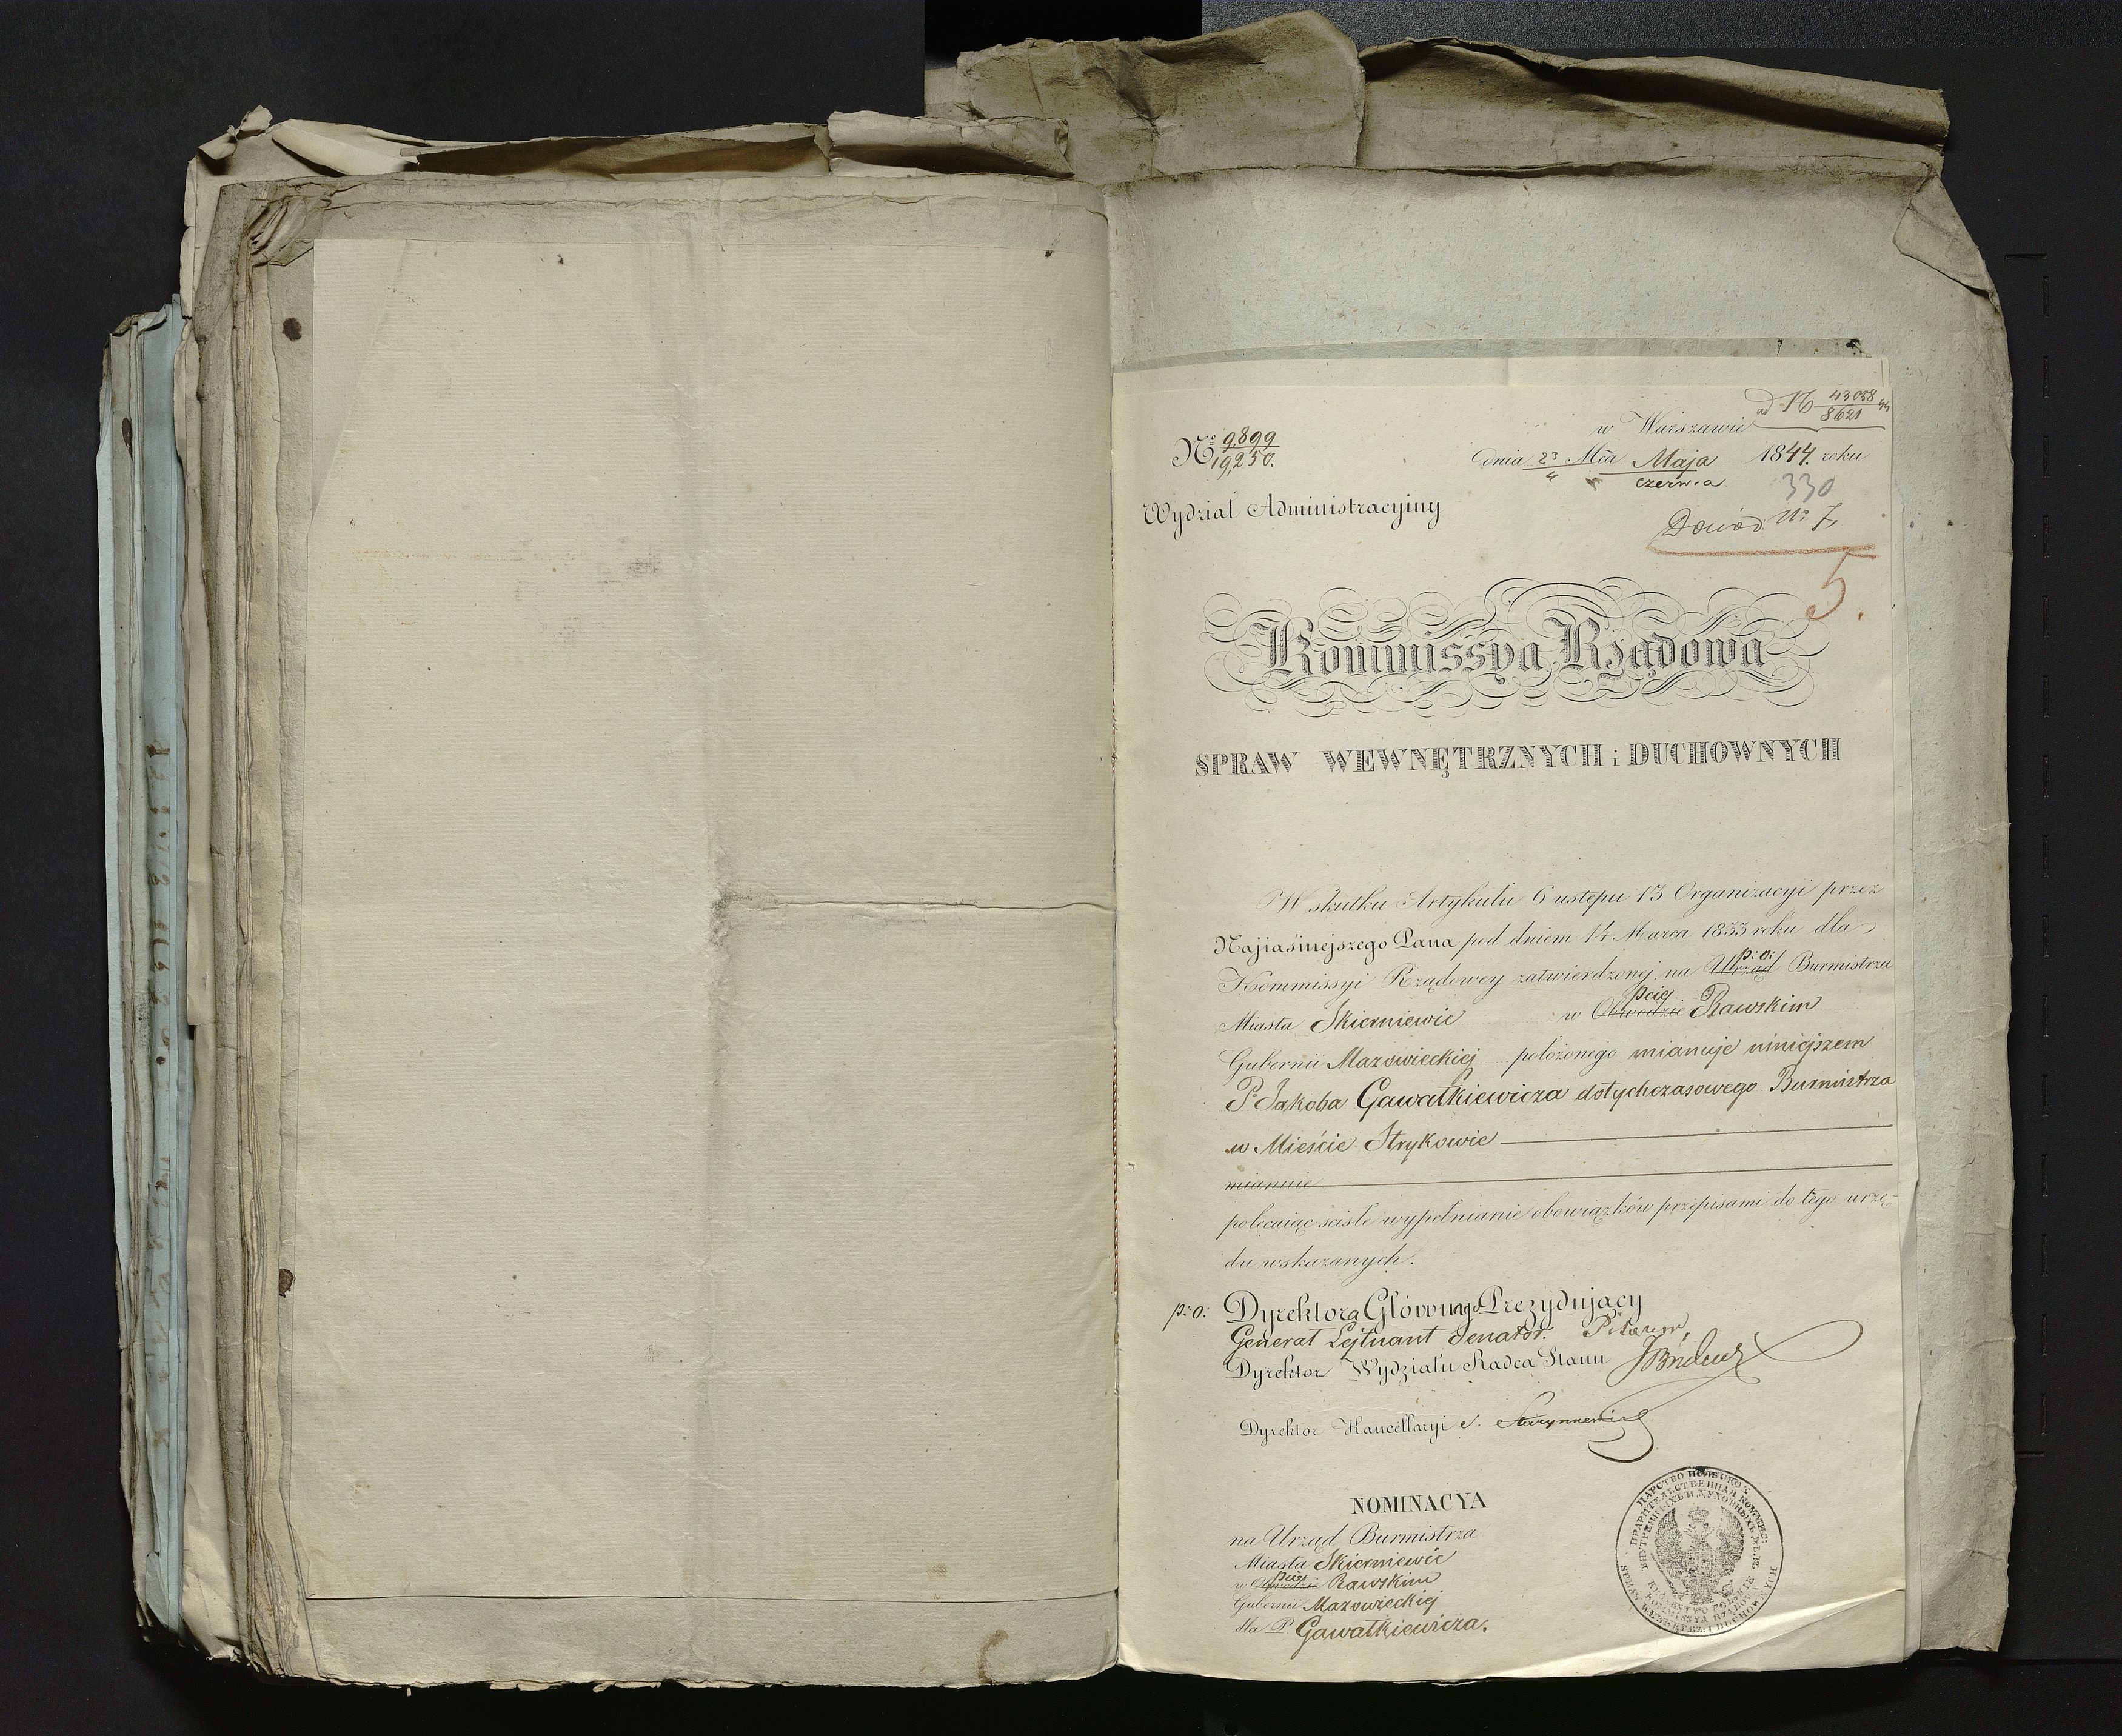 ad N 43058/8621 44
w Warszawie
Nº 9,899/19,250.
dnia 23/4 Mca Maja/czerwca 1844. roku
330
Wydział Administracyiny
Dowód Nr 7,
5.
Kommissya Rządowa
SPRAW WEWNĘTRZNYCH i DUCHOWNYCH
W skutku Artykułu 6 ustępu 13 Organizacyi przez
Najiaśniejszego Pana pod dniem 14 Marca 1833 roku dla
Kommissyi Rządowey zatwierdzonej, na Urząd p:o: Burmistrza
Miasta Skierniewic w Obwodzie Pcie Rawskim
Gubernii Mazowieckiej położonego mianuje niniejszem
P. Jakoba Gawałkiewicza dotychczasowego Burmistrza
w Mieście Strykowie
mianuie
polecaiąc ścisłe wypełnianie obowiązków przepisami do tego urzę-
du wskazanych.
p:o: Dyrektora Głównego Prezydujący
Generał Lejtnant Senator.
Dyrektor Wydziału Radca Stanu
Dyrektor Kancellaryi
NOMINACYA
na Urząd Burmistrza
Miasta Skierniewic
w Obwodzie Pcie Rawskim
Gubernii Mazowieckiej
dla P. Gawałkiewicza.
ЦАРСТВО ПОЛЬСКОЕ
ПРАВИТЕЛЬСТВЕННАЯ КОММИС.
ВНУТРЕННИХЪ И ДУХОВНЫХЪ ДѢЛЪ
KRÓLESTWO POLSKIE
KOMMISSYA RZĄDOWA
SPRAW WEWNĘTRZ: I DUCHOWNYCH